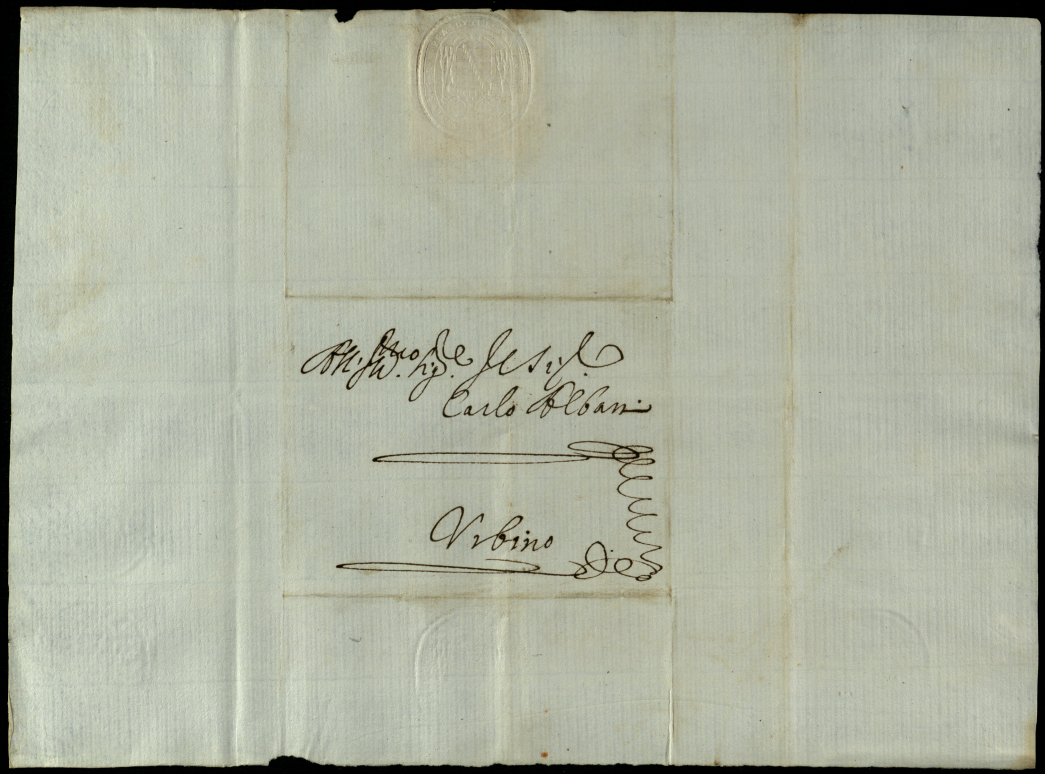 All. Ill.mo Sig.re Il Sig.
Carlo Albani
Urbino